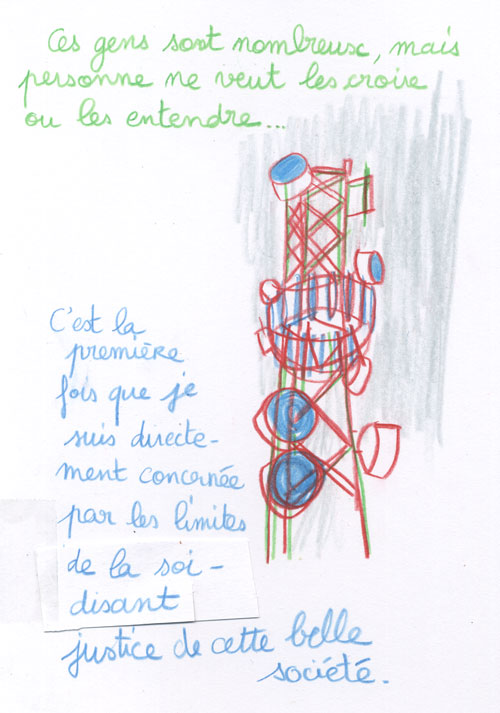 Ces gens sont nombreux, mais
personne ne veut les croire
ou les entendre...
C'est la
première
fois que je
suis directe-
ment concernée
par les limites
de la soi-
disant
justice de cette belle
société.